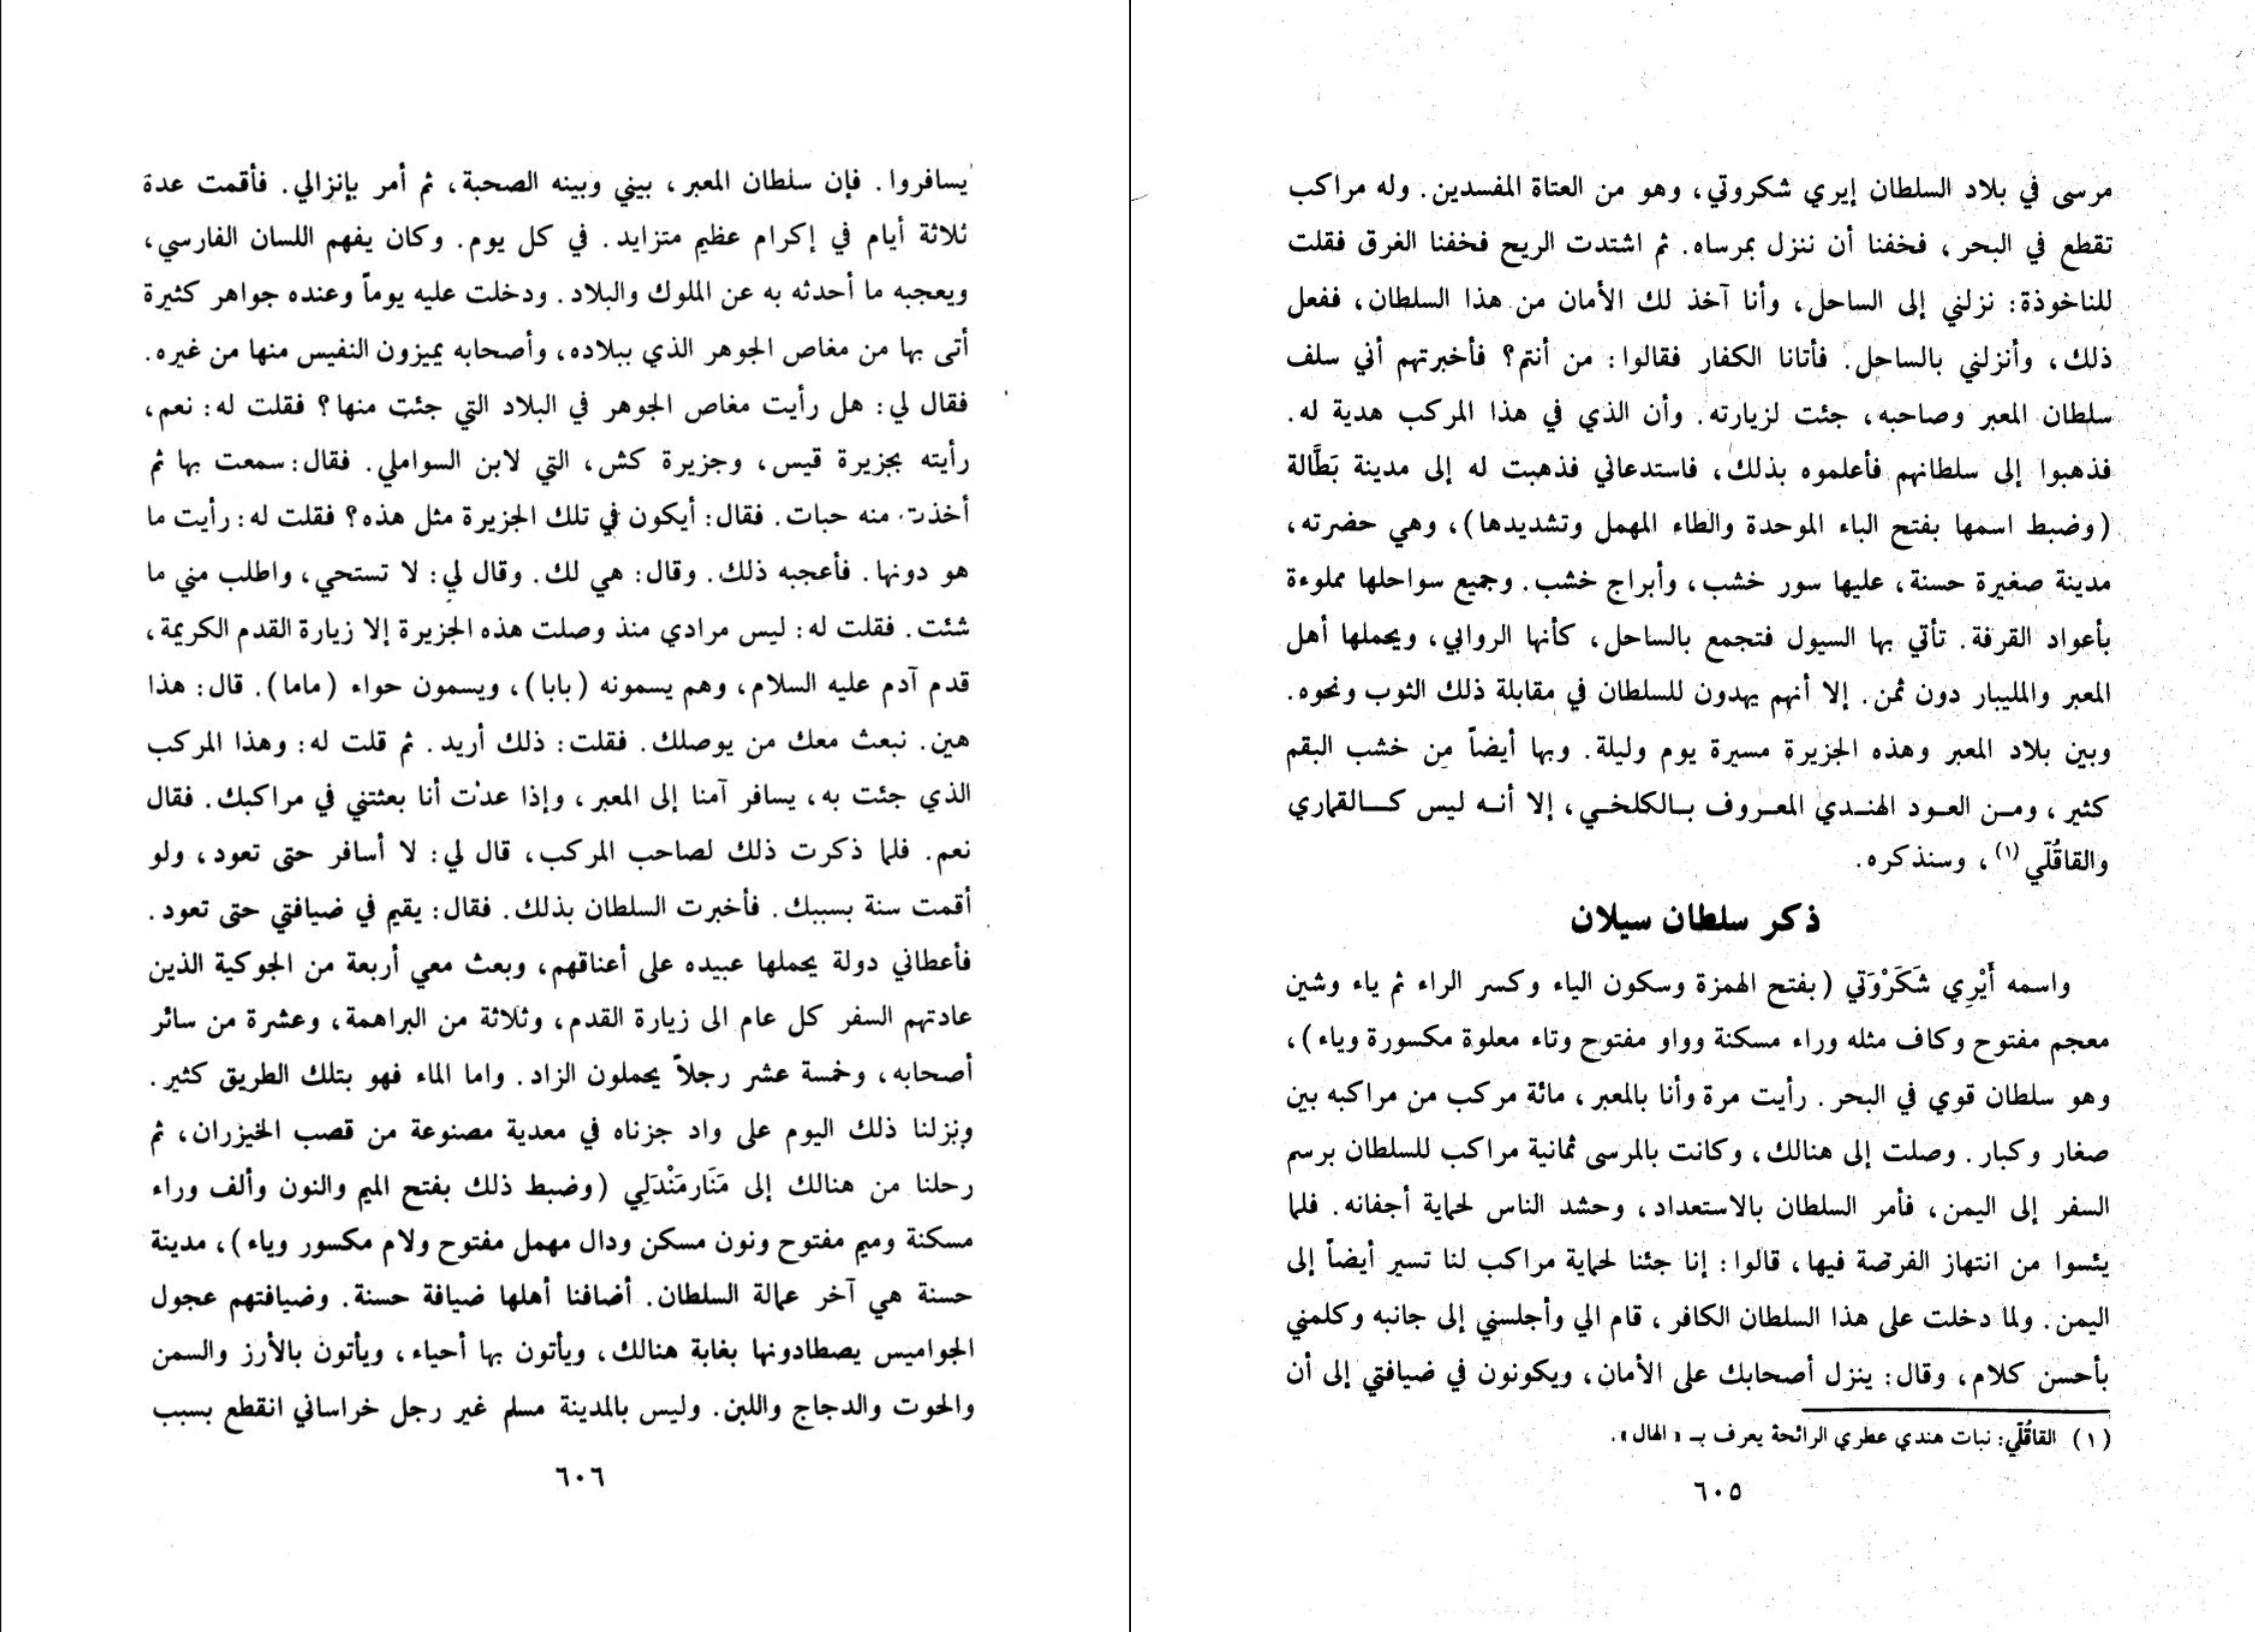 مرسى في بلاد السلطان إيري شكروتي، وهو من العتاة المفسدين. وله مراكب
تقطع في البحر، فخفنا أن ننزل بمرساه. ثم اشتدت الريح فخفنا الغرق فقلت
للناخوذة: نزلني إلى الساحل، وأنا آخذ لك الأمان من هذا السلطان، ففعل
ذلك، وأنزلني بالساحل. فأتانا الكفار فقالوا: من أنتم؟ فأخبرتهم أني سلف
سلطان المعبر وصاحبه، جئت لزيارته. وأن الذي في هذا المركب هدية له.
فذهبوا إلى سلطانهم فأعلموه بذلك، فاستدعاني فذهبت له إلى مدينة بَطَّالة
(وضبط اسمها بفتح الباء الموحدة والطاء المهمل وتشديدها)، وهي حضرته،
مدينة صغيرة حسنة، عليها سور خشب، وأبراج خشب. وجميع سواحلها مملوءة
بأعواد القرفة. تأتي بها السيول فتجمع بالساحل، كأنها الروابي، ويحملها أهل
المعبر والمليبار دون ثمن. إلا أنهم يهدون للسلطان في مقابلة ذلك الثوب ونحوه.
وبين بلاد المعبر وهذه الجزيرة مسيرة يوم وليلة. وبها أيضاً من خشب البقم
كثير، ومن العود الهندي المعروف بالكلخي، إلا أنه ليس كالقماري
والقاقُلّي (١)، وسنذكره.
ذكر سلطان سيلان
واسمه أَيْرِي شَكَرْوَتي (بفتح الهمزة وسكون الياء وكسر الراء ثم ياء وشين
معجم مفتوح وكاف مثله وراء مسكنة وواو مفتوح وتاء معلوة مكسورة وياء)،
وهو سلطان قوي في البحر. رأيت مرة وأنا بالمعبر، مائة مركب من مراكبه بين
صغار وكبار. وصلت إلى هنالك، وكانت بالمرسى ثمانية مراكب للسلطان برسم
السفر إلى اليمن، فأمر السلطان بالاستعداد، وحشد الناس لحماية أجفانه. فلما
يئسوا من انتهاز الفرصة فيها، قالوا: إنا جئنا لحماية مراكب لنا تسير أيضاً إلى
اليمن. ولما دخلت على هذا السلطان الكافر، قام الي وأجلسني إلى جانبه وكلمني
بأحسن كلام، وقال: ينزل أصحابك على الأمان، ويكونون في ضيافتي إلى أن
(١) القاقُلّي: نبات هندي عطري الرائحة يعرف بـ «الهال».
٦٠٥
يسافروا. فإن سلطان المعبر، بيني وبينه الصحبة، ثم أمر بإنزالي. فأقمت عدة
ثلاثة أيام في إكرام عظيم متزايد. في كل يوم. وكان يفهم اللسان الفارسي،
ويعجبه ما أحدثه به عن الملوك والبلاد. ودخلت عليه يوماً وعنده جواهر كثيرة
أتى بها من مغاص الجوهر الذي ببلاده، وأصحابه يميزون النفيس منها من غيره.
فقال لي: هل رأيت مغاص الجوهر في البلاد التي جئت منها؟ فقلت له: نعم،
رأيته بجزيرة قيس، وجزيرة كش، التي لابن السواملي. فقال: سمعت بها ثم
أخذت منه حبات. فقال: أيكون في تلك الجزيرة مثل هذه؟ فقلت له: رأيت ما
هو دونها. فأعجبه ذلك. وقال: هي لك. وقال لي: لا تستحي، واطلب مني ما
شئت. فقلت له: ليس مرادي منذ وصلت هذه الجزيرة إلا زيارة القدم الكريمة،
قدم آدم عليه السلام، وهم يسمونه (بابا)، ويسمون حواء (ماما). قال: هذا
هين. نبعث معك من يوصلك. فقلت: ذلك أريد. ثم قلت له: وهذا المركب
الذي جئت به، يسافر آمنا إلى المعبر، وإذا عدت أنا بعثتني في مراكبك. فقال
نعم. فلما ذكرت ذلك لصاحب المركب، قال لي: لا أسافر حتى تعود، ولو
أقمت سنة بسببك. فأخبرت السلطان بذلك. فقال: يقيم في ضيافتي حتى تعود.
فأعطاني دولة يحملها عبيده على أعناقهم، وبعث معي أربعة من الجوكية الذين
عادتهم السفر كل عام الى زيارة القدم، وثلاثة من البراهمة، وعشرة من سائر
أصحابه، وخمسة عشر رجلاً يحملون الزاد. واما الماء فهو بتلك الطريق كثير.
ونزلنا ذلك اليوم على واد جزناه في معدية مصنوعة من قصب الخيزران، ثم
رحلنا من هنالك إلى مَنَارمَنْدَلِي (وضبط ذلك بفتح الميم والنون وألف وراء
مسكنة وميم مفتوح ونون مسكن ودال مهمل مفتوح ولام مكسور وياء)، مدينة
حسنة هي آخر عمالة السلطان. أضافنا أهلها ضيافة حسنة. وضيافتهم عجول
الجواميس يصطادونها بغابة هنالك، ويأتون بها أحياء، ويأتون بالأرز والسمن
والحوت والدجاج واللبن. وليس بالمدينة مسلم غير رجل خراساني انقطع بسبب
٦٠٦